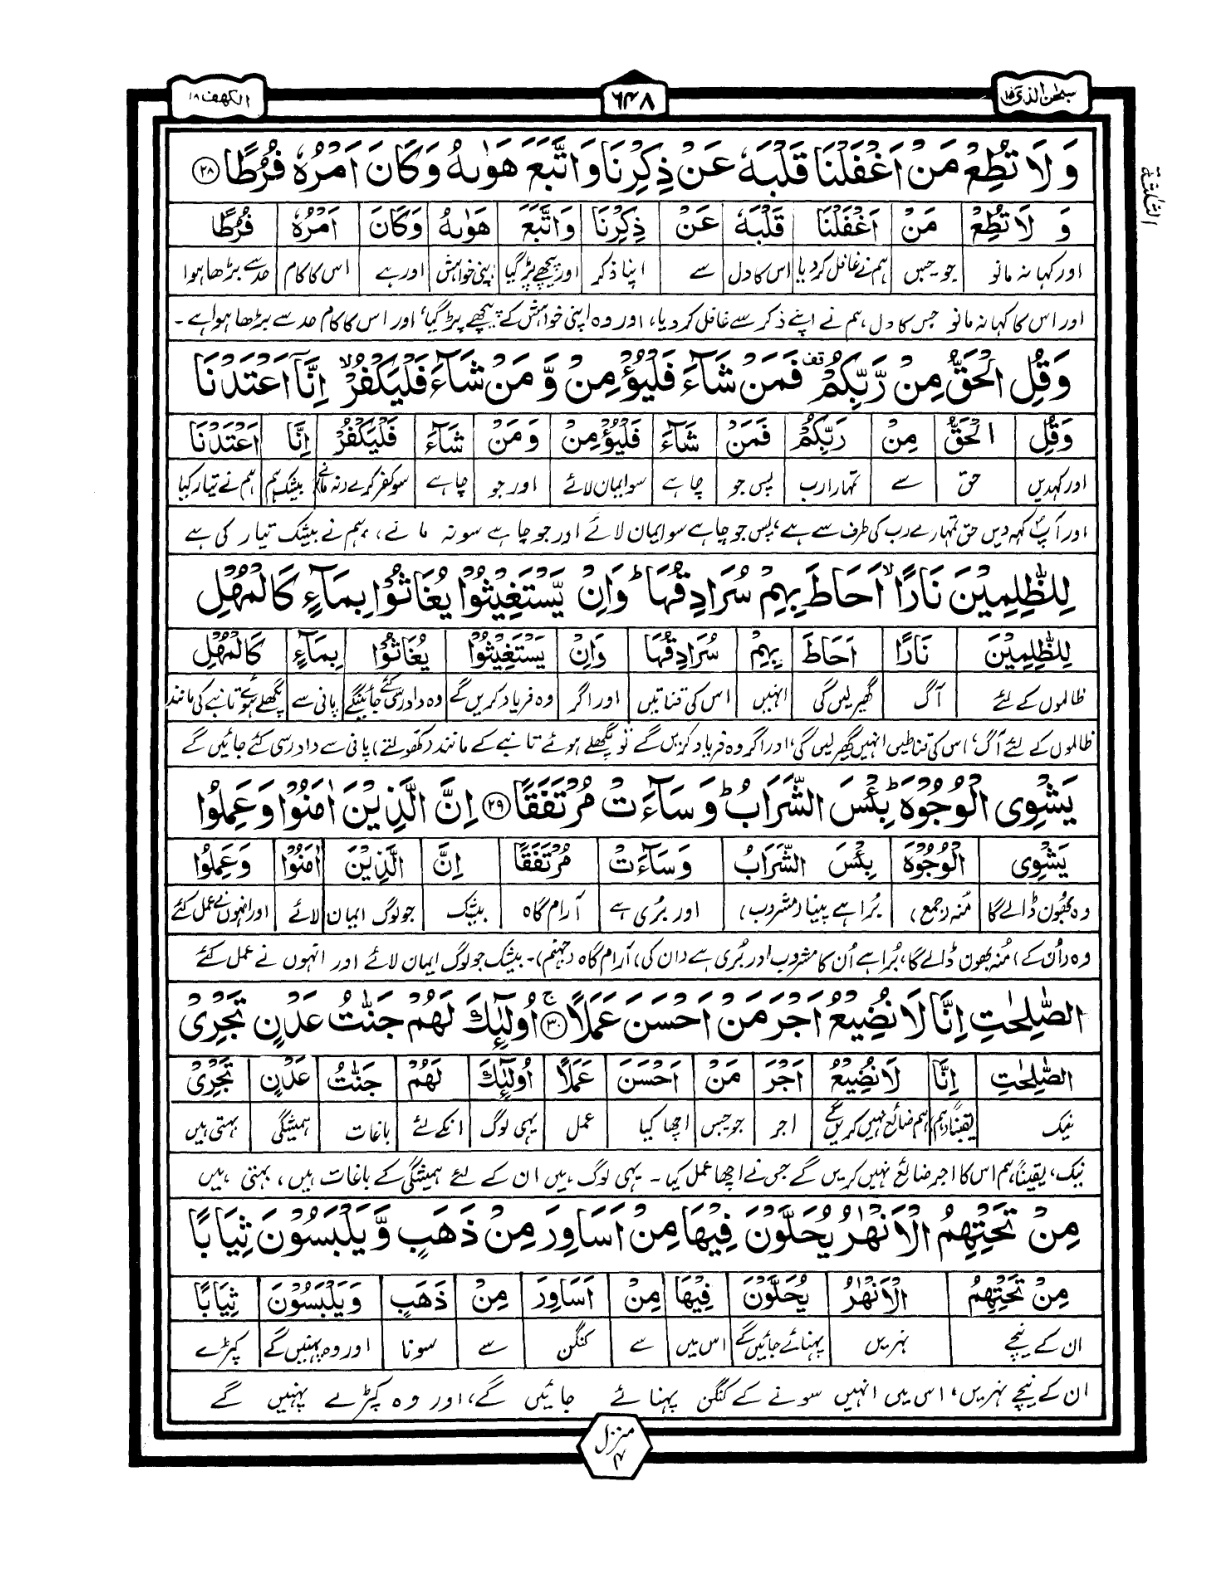 سبحٰن الذی ۱۵
۶۴۸
الکهف ۱۸
الثلثة
وَ لَا تُطِعْ مَنْ اَغْفَلْنَا قَلْبَهٗ عَنْ ذِكْرِنَا وَاتَّبَعَ هَوٰىهُ وَكَانَ اَمْرُهٗ فُرُطًا ﴿۲۸﴾
وَ لَا تُطِعْ مَنْ اَغْفَلْنَا قَلْبَهٗ عَنْ ذِكْرِنَا وَاتَّبَعَ هَوٰىهُ وَكَانَ اَمْرُهٗ فُرُطًا
اور کہا نہ مانو جو جس ہم نے غافل کر دیا اس کا دل سے اپنا ذکر اور پیچھے پڑ گیا اپنی خواہش اور ہے اس کا کام حد سے بڑھا ہوا
اور اس کا کہا نہ مانو جس کا دل ہم نے اپنے ذکر سے غافل کر دیا، اور وہ اپنی خواہش کے پیچھے پڑ گیا، اور اس کا کام حد سے بڑھا ہوا ہے۔
وَقُلِ الْحَقُّ مِنْ رَّبِّكُمْ ۫ فَمَنْ شَآءَ فَلْيُؤْمِنْ وَّ مَنْ شَآءَ فَلْيَكْفُرْ ۙ اِنَّآ اَعْتَدْنَا
وَقُلِ الْحَقُّ مِنْ رَبِّكُمْ فَمَنْ شَآءَ فَلْيُؤْمِنْ وَمَنْ شَآءَ فَلْيَكْفُرْ اِنَّا اَعْتَدْنَا
اور کہدیں حق سے تمہارا رب پس جو چاہے سو ایمان لائے اور جو چاہے سو کفر کرے (نہ مانے) بیشک ہم ہم نے تیار کیا
اور آپؐ کہہ دیں حق تمہارے رب کی طرف سے ہے، پس جو چاہے سو ایمان لائے اور جو چاہے سو نہ مانے، ہم نے بیشک تیار کی ہے
لِلظّٰلِمِيْنَ نَارًا ۙ اَحَاطَ بِهِمْ سُرَادِقُهَا ؕ وَاِنْ يَّسْتَغِيْثُوْا يُغَاثُوْا بِمَآءٍ كَالْمُهْلِ
لِلظّٰلِمِيْنَ نَارًا اَحَاطَ بِهِمْ سُرَادِقُهَا وَاِنْ يَسْتَغِيْثُوْا يُغَاثُوْا بِمَآءٍ كَالْمُهْلِ
ظالموں کے لئے آگ گھیر لیں گی انہیں اس کی قناتیں اور اگر وہ فریاد کریں گے وہ داد رسی کئے جائینگے پانی سے پگھلے ہوئے تانبے کی مانند
ظالموں کے لئے آگ، اس کی قناطیں انہیں گھیر لیں گی، اور اگر وہ فریاد کریں گے تو پگھلے ہوئے تانبے کے مانند (کھولتے) پانی سے داد رسی کئے جائیں گے
يَشْوِى الْوُجُوْهَ ؕ بِئْسَ الشَّرَابُ ؕ وَ سَآءَتْ مُرْتَفَقًا ﴿۲۹﴾ اِنَّ الَّذِيْنَ اٰمَنُوْا وَعَمِلُوا
يَشْوِى الْوُجُوْهَ بِئْسَ الشَّرَابُ وَسَآءَتْ مُرْتَفَقًا اِنَّ الَّذِيْنَ اٰمَنُوْا وَعَمِلُوا
وہ بھون ڈالے گا مُنہ (جمع) بُرا ہے پینا (مشروب) اور بُری ہے آرام گاہ بیشک جو لوگ ایمان لائے اور انہوں نے عمل کئے
وہ (اُن کے) مُنہ بھون ڈالے گا، بُرا ہے اُن کا مشروب اور بُری ہے (ان کی) آرام گاہ (جہنم)۔ بیشک جو لوگ ایمان لائے اور انہوں نے عمل کئے
الصّٰلِحٰتِ اِنَّا لَا نُضِيْعُ اَجْرَ مَنْ اَحْسَنَ عَمَلًا ﴿۳۰﴾ۚ اُولٰٓئِكَ لَهُمْ جَنّٰتُ عَدْنٍ تَجْرِيْ
الصّٰلِحٰتِ اِنَّا لَا نُضِيْعُ اَجْرَ مَنْ اَحْسَنَ عَمَلًا اُولٰٓئِكَ لَهُمْ جَنّٰتُ عَدْنٍ تَجْرِيْ
نیک یقیناً ہم ہم ضائع نہیں کریں گے اجر جو جس اچھا کیا عمل یہی لوگ انکے لئے باغات ہمیشگی بہتی ہیں
نیک، یقیناً ہم اس کا اجر ضائع نہیں کریں گے جس نے اچھا عمل کیا۔ یہی لوگ ہیں ان کے لئے ہمیشگی کے باغات ہیں، بہتی ہیں
مِنْ تَحْتِهِمُ الْاَنْهٰرُ يُحَلَّوْنَ فِيْهَا مِنْ اَسَاوِرَ مِنْ ذَهَبٍ وَّيَلْبَسُوْنَ ثِيَابًا
مِنْ تَحْتِهِمُ الْاَنْهٰرُ يُحَلَّوْنَ فِيْهَا مِنْ اَسَاوِرَ مِنْ ذَهَبٍ وَيَلْبَسُوْنَ ثِيَابًا
ان کے نیچے نہریں پہنائے جائیں گے اس میں سے کنگن سے سونا اور وہ پہنیں گے کپڑے
ان کے نیچے نہریں، اس میں انہیں سونے کے کنگن پہنائے جائیں گے، اور وہ کپڑے پہنیں گے
منزل ۴